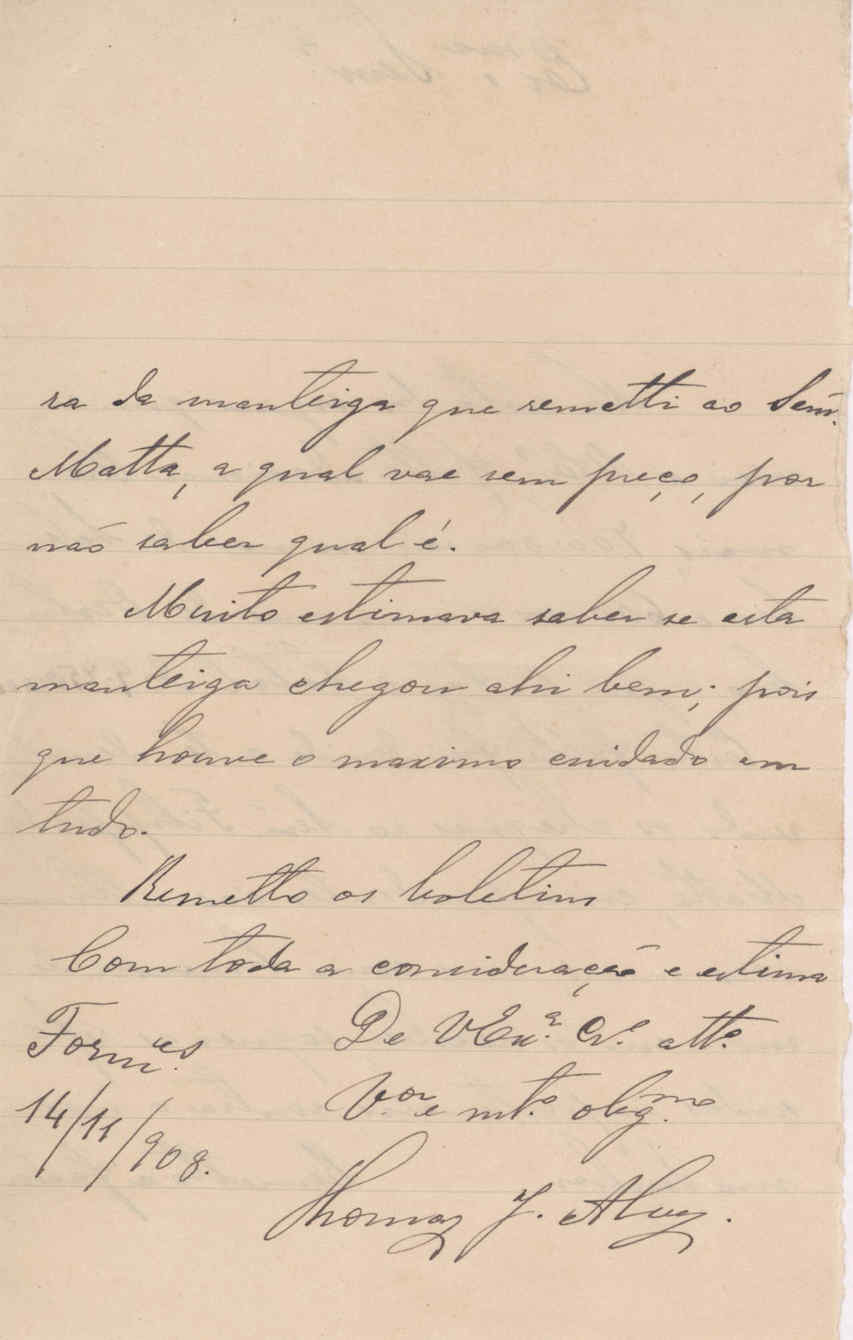 ra da manteiga que remetti ao Senr.
Matta, a qual vae sem preço, por
não saber qual é.
Muito estimava saber se esta
manteiga chegou ahi bem; pois
que houve o maximo cuidado em
tudo.
Remetto os boletins
Com toda a consideração e estima
De VEx.ª Cr.º att.º
Form.es
V.or e mt.º obig.mo
14/11/908.
Thomaz J. Alvez.